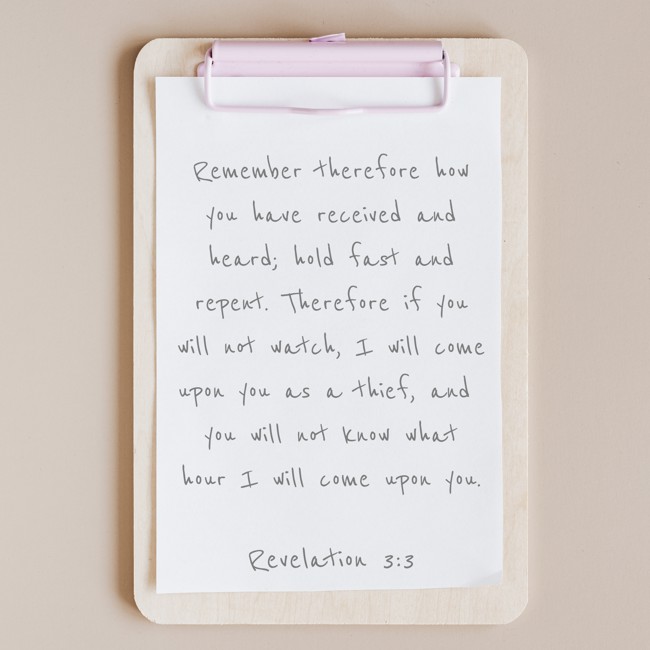 Remember therefore how
you have received and
heard; hold fast and
repent. Therefore if you
will not watch, I will come
upon you as a thief, and
you will not know what
hour I will come upon you.
Revelation 3:3